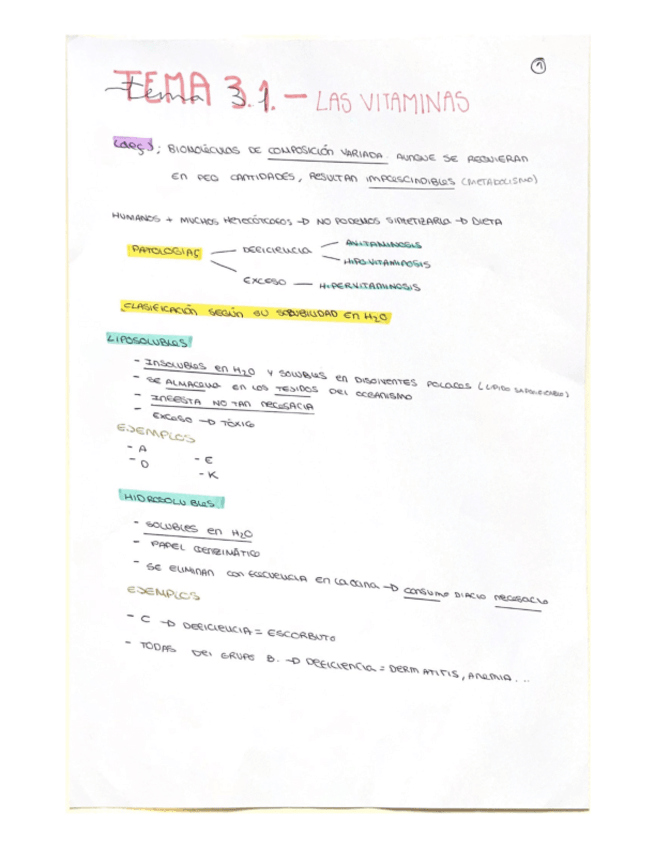 1
TEMA 3.1. – LAS VITAMINAS
tema 3.1.
BIOMOLÉCULAS DE COMPOSICIÓN VARIADA. AUNQUE SE REQUIERAN
EN PEQ CANTIDADES, RESULTAN IMPRESCINDIBLES (METABOLISMO)
HUMANOS + MUCHOS HETERÓTROFOS → NO PODEMOS SINTETIZARLA → DIETA
PATOLOGIAS — DEFICIENCIA — AVITAMINOSIS
HIPOVITAMINOSIS
EXCESO — HIPERVITAMINOSIS
CLASIFICACIÓN SEGÚN SU SOLUBILIDAD EN H2O
LIPOSOLUBLES
- INSOLUBLES EN H2O Y SOLUBLES EN DISOLVENTES POLARES (LÍPIDO
- SE ALMACENA EN LOS TEJIDOS DEL ORGANISMO
- INGESTA NO TAN NECESARIA
- EXCESO → TÓXICO
EJEMPLOS
- A
- D - E
- K
HIDROSOLUBLES
- SOLUBLES EN H2O
- PAPEL
- SE ELIMINAN CON FRECUENCIA EN LA ORINA → CONSUMO DIARIO NECESARIO
EJEMPLOS
- C → DEFICIENCIA = ESCORBUTO
- TODAS DEL GRUPO B. → DEFICIENCIA = DERMATITIS, ANEMIA...